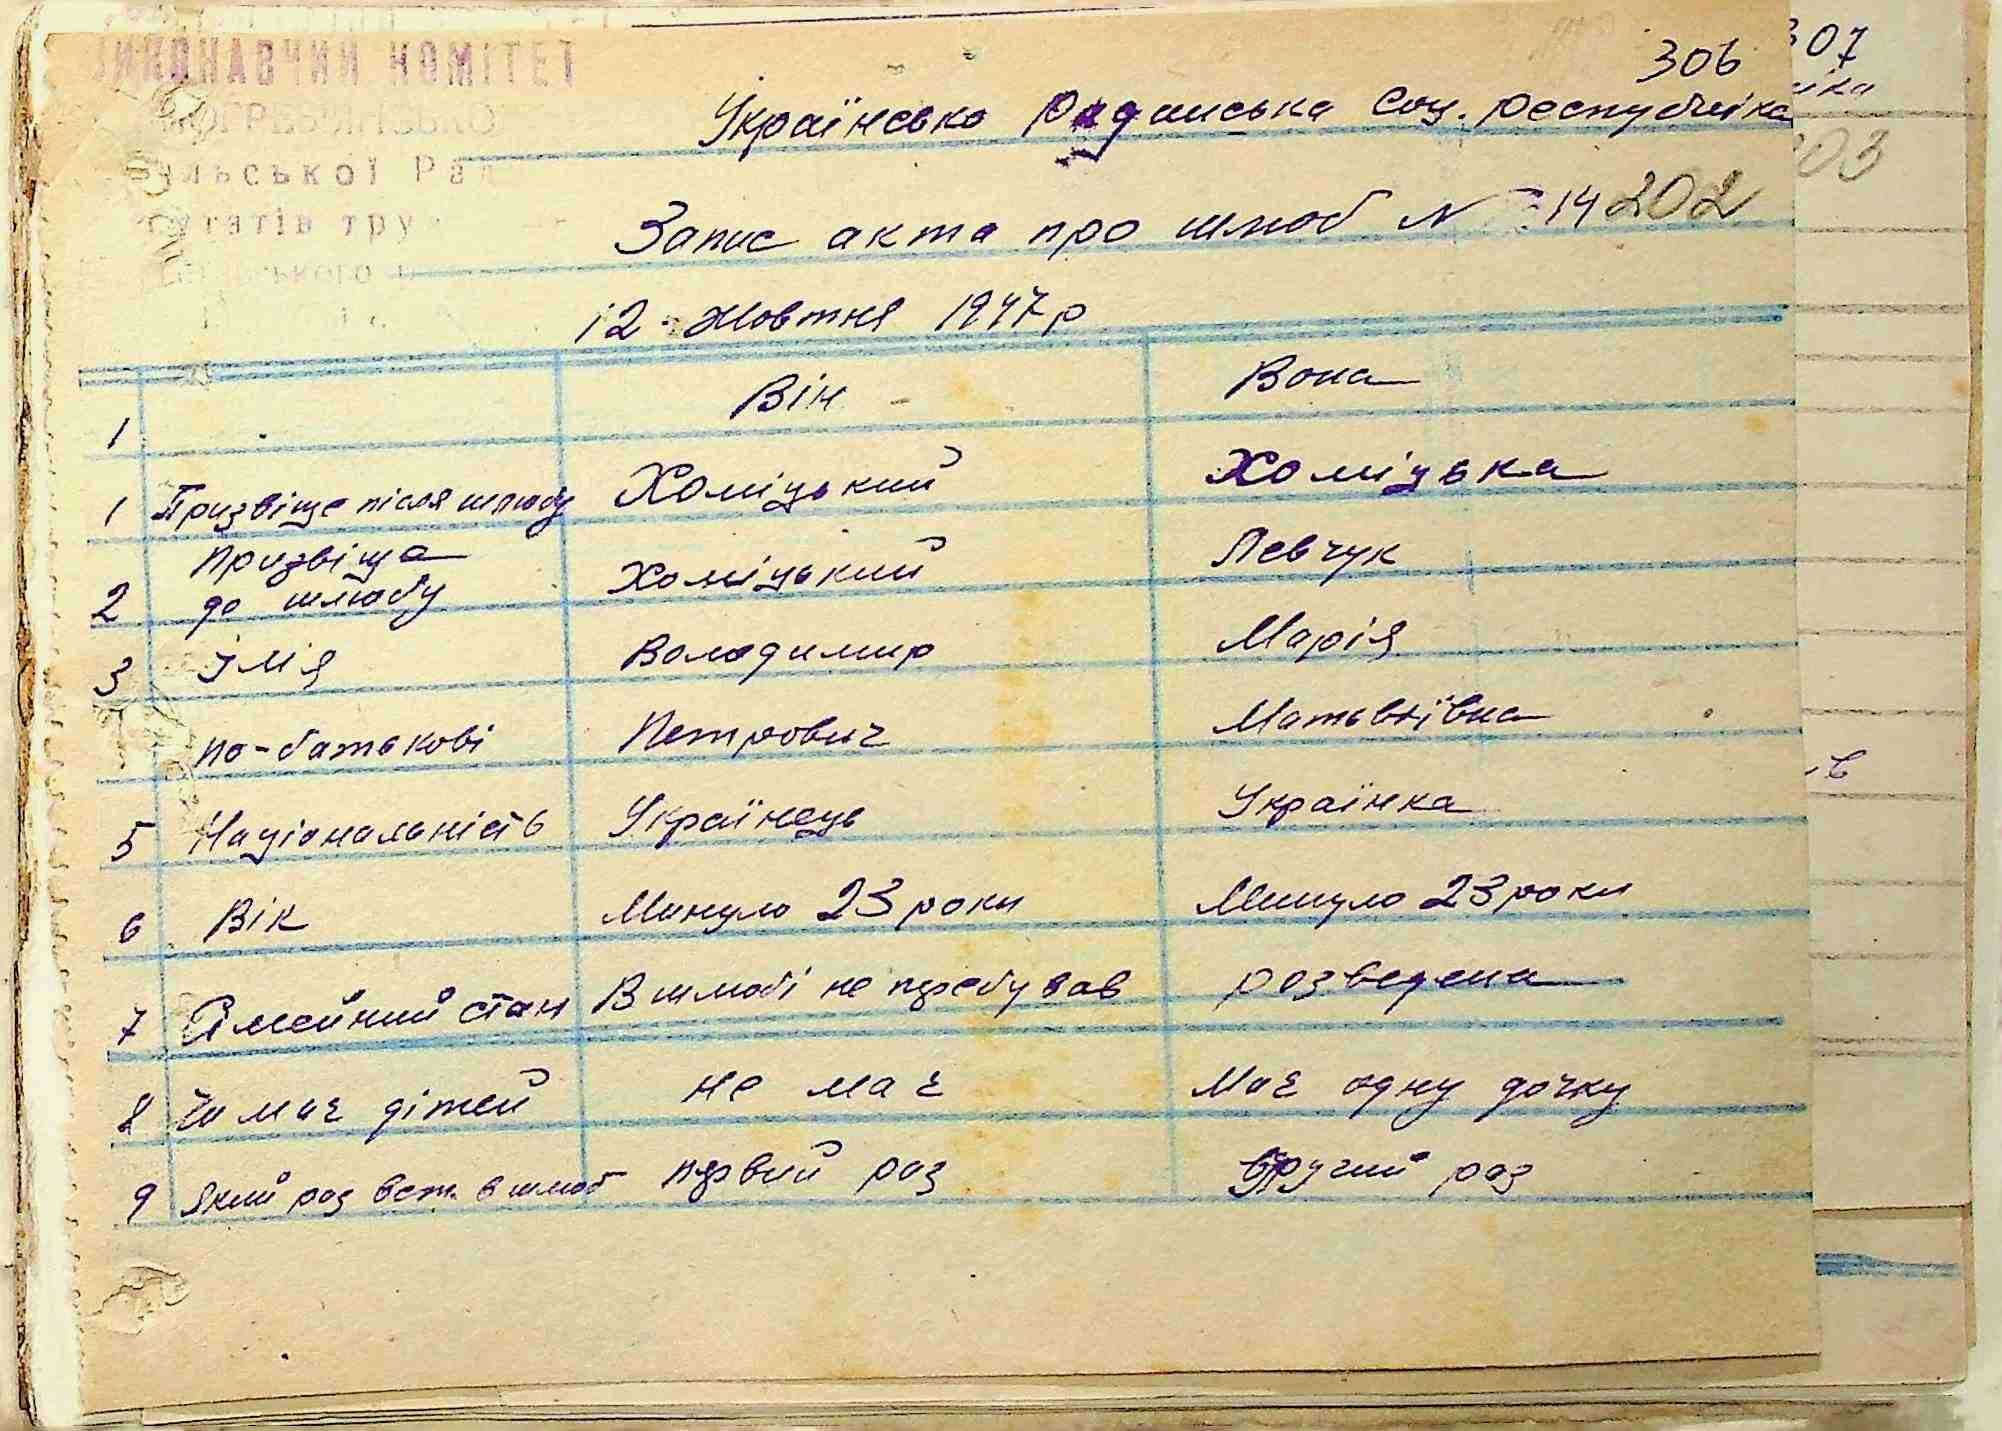 ВИКОНАВЧИЙ КОМІТЕТ
сільської Рад
306
Українсько Радянська Соц. республіка
Запис акта про шлюб № 14 202
12 жовтня 1947 р
1 Він Вона
1 Призвіще після шлюбу Хоміцький Хоміцька
2 Призвіща до шлюбу Хоміцький Левчук
3 Імія Володимир Марія
по-батькові Петрович Матьвіївна
5 Національність Українець Українка
6 Вік Минуло 23 роки Минуло 23 роки
7 Сімейний стан В шлюбі не перебував розведена
8 Чи має дітей не має Має одну дочку
9 Який раз вст. в шлюб первий раз другий раз
307
іка
203